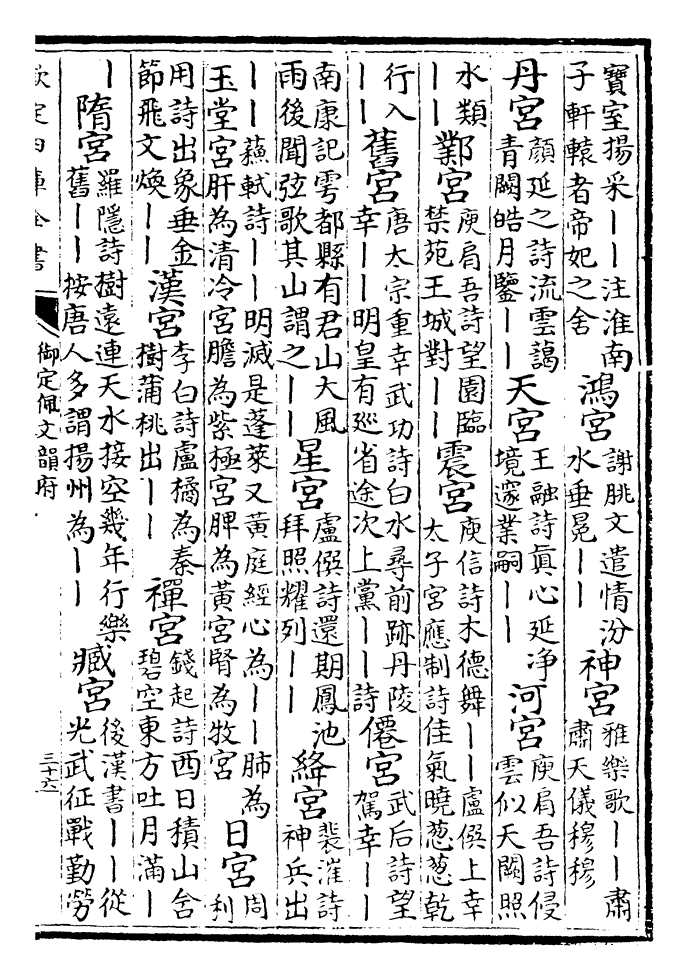 寶室揚采丨丨注淮南子軒轅者帝妃之舍 鴻宮 謝朓文遣情汾水垂冕丨丨 神宮 雅樂歌丨丨肅肅天儀穆穆
丹宮 顏延之詩流雲藹青闕皓月鑒丨丨 天宮 王融詩眞心延净境邃業嗣丨丨 河宮 庾肩吾詩侵雲似天闕照
水類丨丨 鄴宮 庾肩吾詩望園臨禁苑王城對丨丨 震宮 庾信詩木德舞丨丨盧僎上幸太子宮應制詩佳氣曉葱葱乾
行入丨丨 舊宮 唐太宗重幸武功詩白水尋前跡丹陵幸丨丨明皇有巡省途次上黨丨丨詩 僊宮 武后詩望駕幸丨丨
南康記雩都縣有君山大風雨後聞弦歌其山謂之丨丨 星宮 盧僎詩還期鳳池拜照耀列丨丨 絳宮 裴漼詩神兵出
丨丨蘓軾詩丨丨明滅是蓬萊又黃庭經心為丨丨肺為玉堂宮肝為清冷宮膽為紫極宮脾為黃宮腎為牧宮 日宮 周利
用詩出象垂金節飛文煥丨丨 漢宮 李白詩盧橘為秦樹蒲桃出丨丨 禪宮 錢起詩西日積山含碧空東方吐月滿丨
丨 隋宮 羅隱詩樹遠連天水接空幾年行樂舊丨丨按唐人多謂揚州為丨丨 臧宮 後漢書丨丨從光武征戰勤勞
欽定四庫全書
御定佩文韻府
三十六